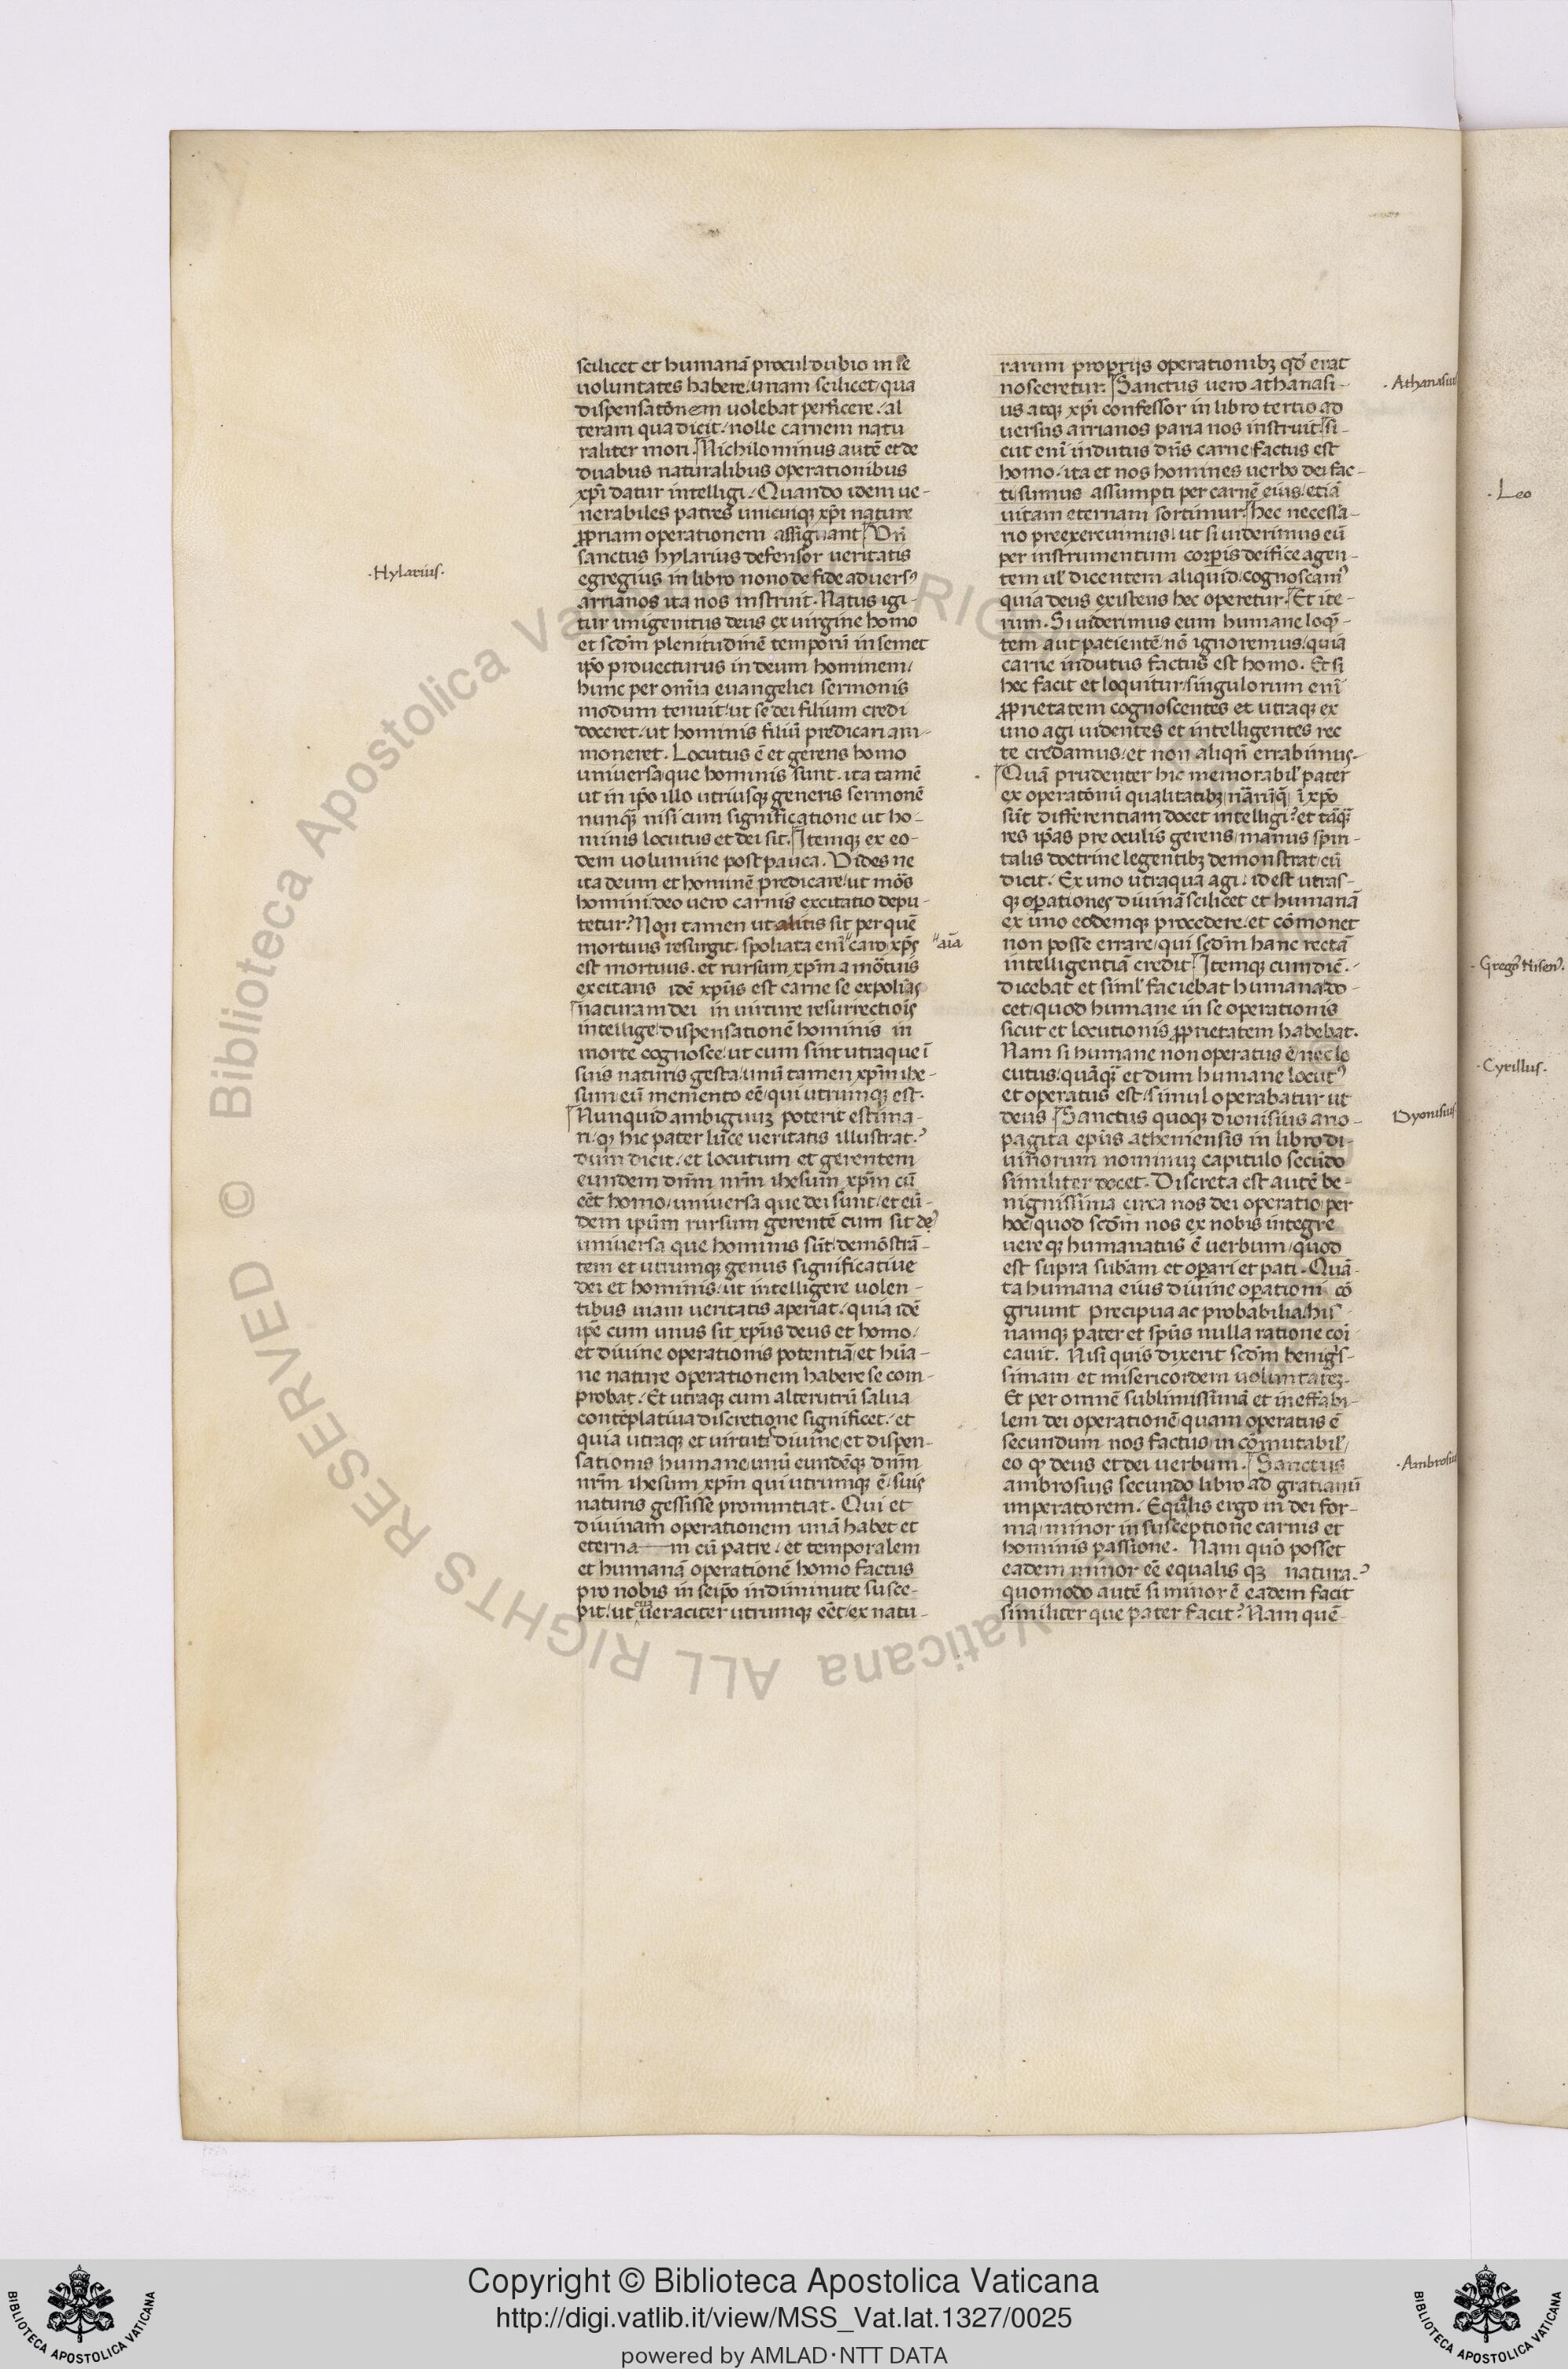 scilicet et humanā procul dubio in se
uoluntates habere / unam scilicet / qua
dispensatōnem uolebat perficere / al
teram qua dicit / nolle carnem natu
raliter mori. Nichilominus autē et de
duabus naturalibus operationibus
xp̄i datur intelligi / Quando idem ue-
nerabiles patres unicuiqꝫ xp̄i nature
ꝓpriam operationem assignant Vn̄
sanctus hylarius defensor ueritatis
egregius in libro nono de fide aduersꝰ
arrianos ita nos instruit. Natus igi-
tur unigenitus deus ex uirgine homo
et scd̄m plenitudinē temporū in semet
ip̄o prouecturus in deum hominem /
hunc per om̄ia euangelici sermonis
modum tenuit / ut se dei filium credi
doceret / ut hominis filiū predicari am-
moneret. Locutus ē et gerens homo
uniuersa que hominis sunt. ita tamē
ut in ip̄o illo utriusqꝫ generis sermonē
nunqꝫ nisi cum significatione ut ho-
minis locutus et dei sit. Itemqꝫ ex eo-
dem uolumine post pauca. Vides ne
ita deum et hominē predicare / ut mōs
homini / deo uero carnis excitatio depu-
tetur? Non tamen ut alius sit per quē
mortuus resurgit. spoliata enī caro xp̄s
est mortuus. et rursum xp̄m a mōtuis
excitans idē xp̄us est carne se expolias
naturam dei in uirtute resurrectiōis
intellige / dispensationē hominis in
morte cognosce / ut cum sint utraque ī
suis naturis gesta / unū tamen xp̄m ihe-
sum eū memento eē / qui utrumqꝫ est.
Nunquid ambiguuꝫ poterit estima-
ri / qꝫ hic pater luce ueritatis illustrat?
dum dicit / et locutum et gerentem
eundem dn̄m nr̄m ihesum xp̄m cū
eēt homo / uniuersa que dei sunt / et eū-
dem ipūm rursum gerentē cum sit deꝰ
uniuersa que hominis sūt / demōstrā-
tem et utrumqꝫ genus significatiue
dei et hominis / ut intelligere uolen-
tibus uiam ueritatis aperiat / quia idē
ipē cum unus sit xp̄us deus et homo /
et diuine operationis potentiā / et hūa-
ne nature operationem habere se com-
probat / Et utraqꝫ cum alterutrū salua
contēplatiua discretione significet / et
quia utraqꝫ et uirtutis diuine / et dispen-
sationis humane / unū eundēqꝫ dn̄m
nr̄m ihesum xp̄m qui utrumqꝫ ē / suis
naturis gessisse pronuntiat. Qui et
diuinam operationem unā habet et
eterna—m cū patre / et temporalem
et humanā operationē homo factus
pro nobis in seip̄o indiminute susce-
pit / ut ueraciter utrumqꝫ eēt / ex natu-
·Hylarius·
aīa
rarum proprijs operationibꝫ qd̄ erat
nosceretur. Sanctus uero athanasi-
us atqꝫ xp̄i confessor in libro tertio ad
uersus arrianos paria nos instruit si-
cut enī indutus dn̄s carne / factus est
homo / ita et nos homines uerbo dei fac-
ti sumus assumpti per carnē eius / etiā
uitam eternam sortimur. hec necessa-
rio preexercuimus / ut si uiderimus eū
per instrumentum corꝑis deifice agen-
tem ul̄ dicentem aliquid / cognoscamꝰ
quia deus existens hec operetur. Et ite-
rum. Si uiderimus eum humane loqꝫ-
tem aut patientē / nō ignoremus / quia
carne indutus factus est homo. Et si
hec facit et loquitur / singulorum enī
ꝓprietatem cognoscentes et utraqꝫ ex
uno agi uidentes et intelligentes rec
te credamus / et non aliqn̄ errabimus.
Quā prudenter hic memorabil̄ pater
ex operatōnū qualitatibꝫ nāruqꝫ ī xp̄o
sūt differentiam docet intelligi? et tāqꝫ
res ip̄as pre oculis gerens / manus spiri-
talis doctrine legentibꝫ demonstrat / cū
dicit. Ex uno utraqua agi. id est utras-
qꝫ oꝑationes diuinā scilicet et humanā
ex uno eodemqꝫ procedere / et cōmonet
non posse errare / qui scd̄m hanc rectā
intelligentiā credit Itemqꝫ cum diē.
dicebat et siml̄ faciebat humana do-
cet / quod humane in se operationis
sicut et locutionis ꝓprietatem habebat.
Nam si humane non operatus ē / nec lo
cutus / quāqꝫ et dum humane locutꝰ
et operatus est / simul operabatur ut
deus Sanctus quoqꝫ dionisius ario-
pagita ep̄us atheniensis in libro di-
uinorum nominuꝫ capitulo secūdo
similiter docet. Discreta est autē be-
nignissima circa nos dei operatio / per
hoc / quod scd̄m nos ex nobis integre
uereqꝫ humanatus ē uerbum / quod
est supra subam et oꝑari et pati. Quā-
ta humana eius diuine oꝑationi cō
gruunt precipua ac probabilia / his
namqꝫ pater et sp̄us nulla ratione cōi
cauit. Nisi quis dixerit scd̄m benigs-
simam et misericordem uoluntateꝫ.
Et per omnē sublimissimā et ineffabi-
lem dei operationē / quam operatus ē
secundum nos factus / incōmutabil̄ /
eo qꝫ deus et dei uerbum. Sanctus
ambrosius secundo libro ad gratianū
imperatorem. Equalis ergo in dei for-
ma / minor in susceptione carnis et
hominis passione. Nam quō posset
eadem minor eē equalis qꝫ natura?
quomodo autē si minor ē eadem facit
similiter que pater facit? Nam quē-
·Athanasius
Dyonisius
·Ambrosius
·Leo
·Gregoꝰ Nisenꝰ.
·Cyrillus·
© Biblioteca Apostolica Vaticana ALL RIGHTS RESERVED
Copyright © Biblioteca Apostolica Vaticana
http://digi.vatlib.it/view/MSS_Vat.lat.1327/0025
powered by AMLAD·NTT DATA
BIBLIOTECA APOSTOLICA VATICANA
BIBLIOTECA APOSTOLICA VATICANA